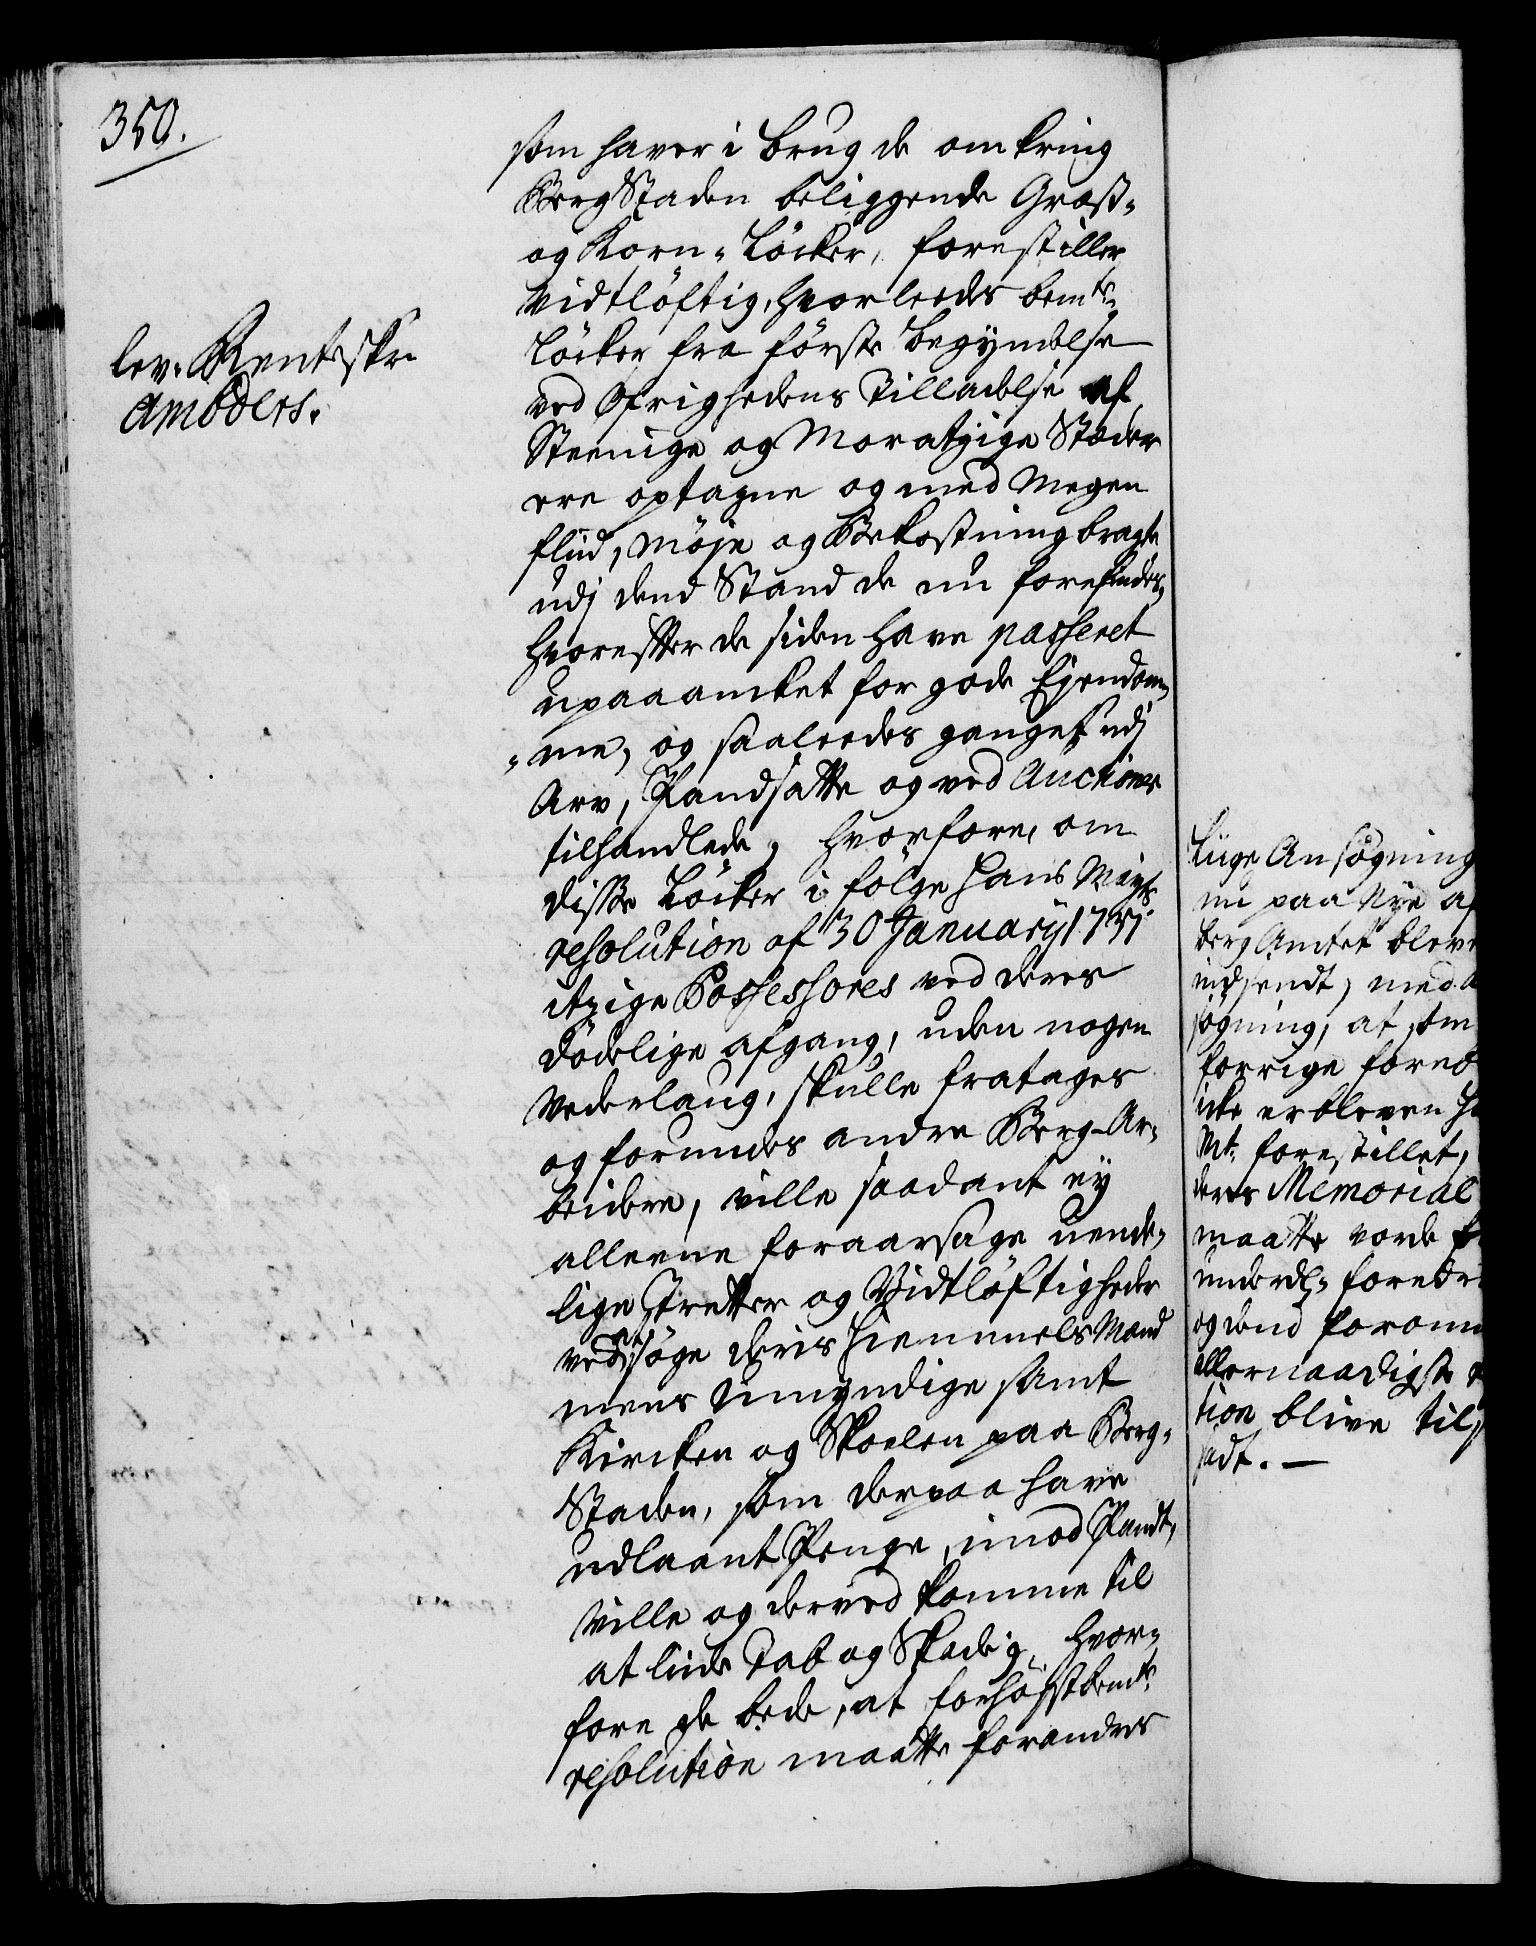 350.
lev. Renteskr.
Ambders.
som haver i brug de omkring
Bergstaden beliggende Græs-
og Korn-Löcker, forestiller
vidtlöftig, hvorleedes bemte.
Löcker fra förste begyndelse
ved Öfrighedens Tilladelse af
Steenige og Moratzige Stæder
ere optagne og med megen
fliid, möje og Bekostning bragte
udj dend Stand de nu forefindes,
hvorefter de siden have passeret
upaaancket for gode Ejendom-
me, og saaleedes ganget udj
Arv, Pandsatte og ved Auctioner
tilhandlede; hvorfore, om
disse Löcker i fölge Hans Mayts
resolution af 30 January 1737.
itzige Possessores ved deres
dödelige afgang, uden nogen
vederlaug, skulle fratages
og forundes andre Berg-Ar-
beidere, ville saadant ey
alleene foraarsage uende-
lige Tretter og Vidtlöftigheder
ved at söge deris Hiemmels Mænd
mens Umyndige samt
Kircken og Skoelen paa Berg-
Staden, som derpaa have
udlaant Penge, imod Pandt,
ville og derved komme til
at liide Tab og Skade; hvor-
fore de bede, at forhöjstbemte
resolution maatte forandres
Liige Ansögning
nu paa Nye af
berg Amtet bleve
indsendt, med a
sögning, at som
forrige foreb
icke er bleven H
Mt. forestillet,
deres Memorial
maatte vorde
underd. forebr
og dend forom
allernaadigste
tion blive til
sadt. —